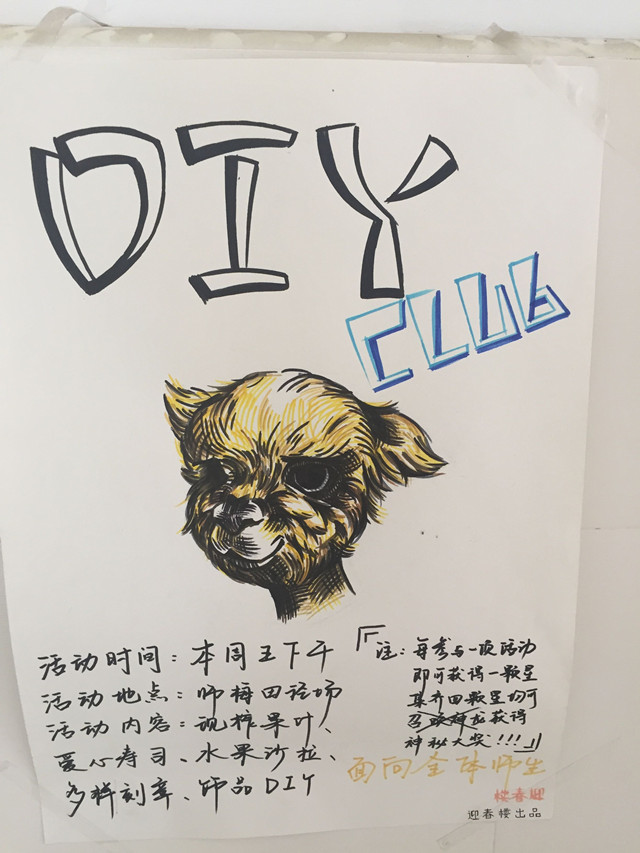 DIY
CLUB
活动时间：本周五下午
活动地点：师梅田径场
活动内容：现榨果汁、
爱心寿司、水果沙拉、
多样刻章、饰品DIY
『注：每参与一项活动
即可获得一颗星
集齐四颗星均可
获得
神秘大奖!!!』
面向全体师生
楼春迎
迎春楼出品